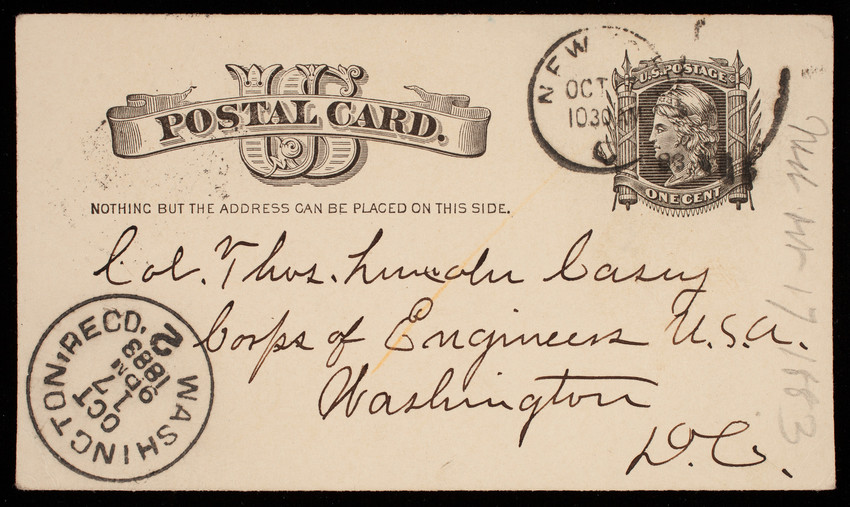 US
POSTAL CARD.
NOTHING BUT THE ADDRESS CAN BE PLACED ON THIS SIDE.
NEW
OCT
1030AM
83
U.S. POSTAGE
ONE CENT
Col. Thos. Lincoln Casey
Corps of Engineers U.S.A.
Washington
D.C.
WASHINGTON, RECD.
OCT
17
9 PM
1883
2
17 1883